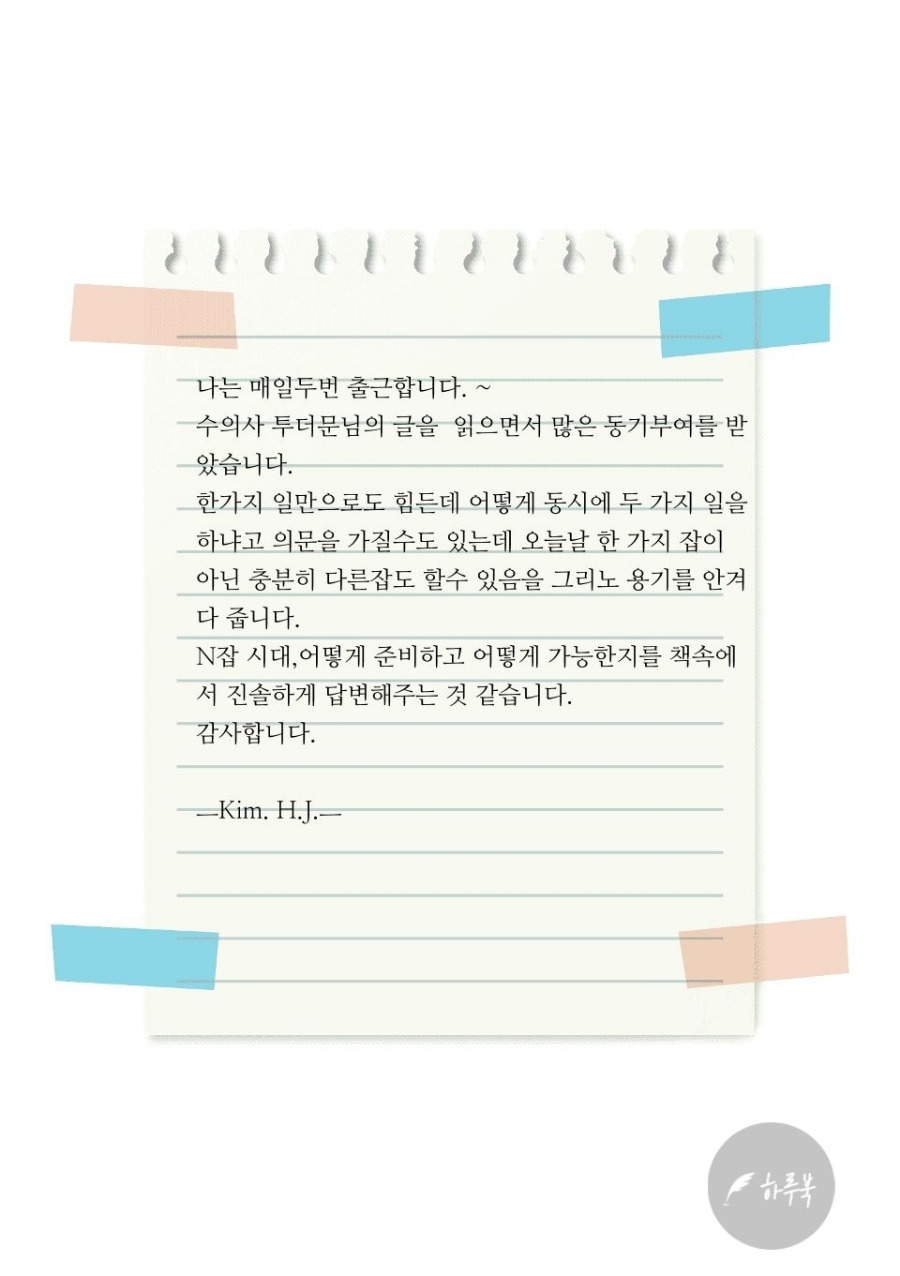 나는 매일두번 출근합니다. ~
수의사 투더문님의 글을  읽으면서 많은 동기부여를 받
았습니다.
한가지 일만으로도 힘든데 어떻게 동시에 두 가지 일을
하냐고 의문을 가질수도 있는데 오늘날 한 가지 잡이
아닌 충분히 다른잡도 할수 있음을 그리노 용기를 안겨
다 줍니다.
N잡 시대,어떻게 준비하고 어떻게 가능한지를 책속에
서 진솔하게 답변해주는 것 같습니다.
감사합니다.
—Kim. H.J.—
하루북